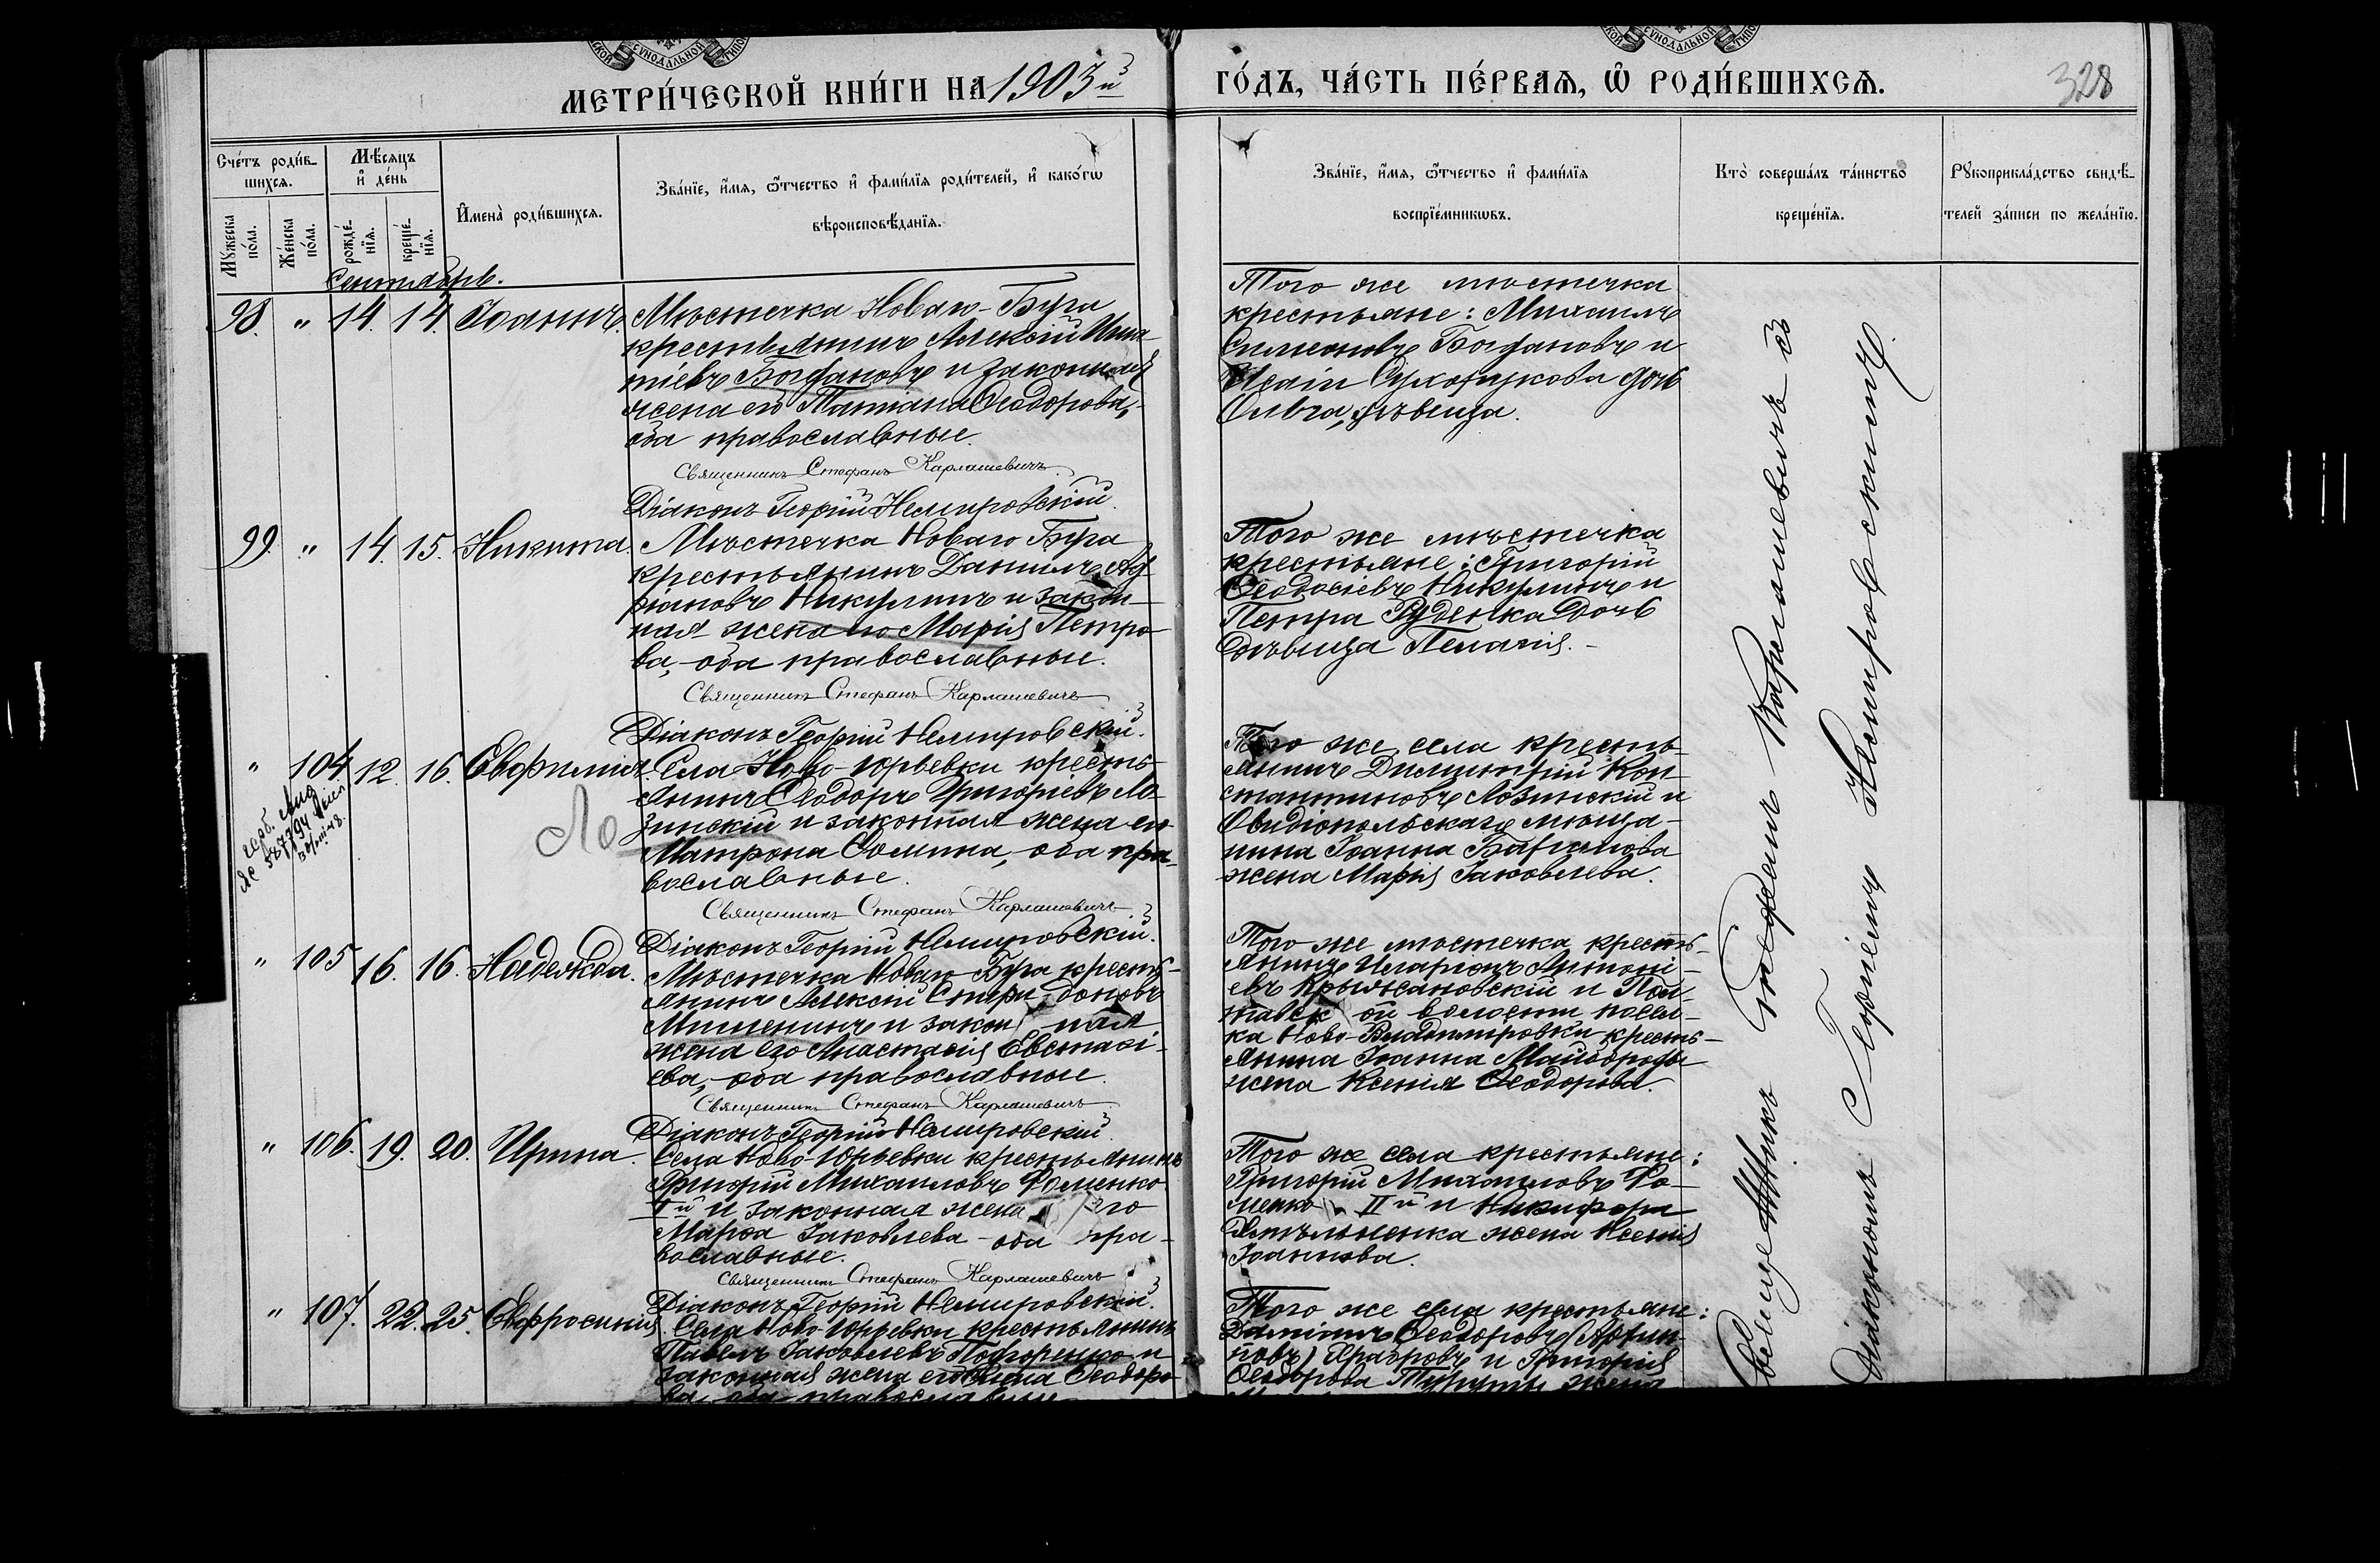 МЕТРИ́ЧЕСКОЙ КНИ́ГИ НА 1903й ГО́ДЪ, ЧА́СТЬ ПЕ́РВАЯ, Ѡ РОДИ́ВШИХСЯ.
328
Сче́тъ роди́в-
шихся.
Мѣ́сяцъ
и де́нь
Мꙋжеска
по́ла.
Же́нска
по́ла.
рожде́-
нїя.
креще́-
нїя.
Имена̀ роди́вшихся.
Зва́нїе, и́мя, ѻ́тчество и фами́лїя роди́телей, и како́гѡ
вѣроисповѣ́данїя.
Зва́нїе, и́мя, ѻ́тчество и фами́лїя
воспрїе́мникѡвъ.
Кто̀ соверша́лъ та́инство
креще́нїя.
Рꙋкоприкла́дство свидѣ́-
телей за́писи по жела́нїю.
Сентябрь.
98. " 14. 14. Іоаннъ.
Мѣстечка Новаго-Буга
крестьянинъ Алексій Игна-
тіевъ Богдановъ и законная
жена его Татіана Ѳеодорова,
оба православные.
Священникъ Стефанъ Карлашевичъ
Діаконъ Георгій Немировскій.
Того же мѣстечка
крестьяне: Михаилъ
Симеоновъ Богдановъ и
Сухорукова дочь
Ольга, дѣвица.
99. " 14. 15. Никита.
Мѣстечка Новаго Буга
крестьянинъ Даніилъ Ад-
ріановъ Никулинъ и закон-
ная жена его Марія Петро-
ва, оба православные.
Священникъ Стефанъ Карлашевичъ
Діаконъ Георгій Немировскій.
Того же мѣстечка
крестьяне: Григорій
Ѳеодосіевъ Никулинъ и
Петра Руденка дочь
дѣвица Пелагія.-
" 104. 12. 16. Евфимія.
Села Ново-Юрьевки кресть-
янинъ Ѳеодоръ Григоріевъ Ло-
зинскій и законная жена его
Матрона Ѳомина, оба пра-
вославные.
Священникъ Стефанъ Карлашевичъ
Діаконъ Георгій Немировскій.
Ло
Того же села кресть-
янинъ Димитрій Кон-
стантиновъ Лозинскій и
Овидіопольскаго мѣща-
нина Іоанна
жена Марія Іаковлева.
" 105 16. 16. Надежда.
Мѣстечка Новаго Буга кресть-
янинъ Алексій Спиридоновъ
Мишенинъ и законная
жена его Анастасія Евстаѳі-
ева, оба православные.
Священникъ Стефанъ Карлашевичъ
Діаконъ Георгій Немировскій.
Того же мѣстечка кресть-
янинъ Иларіонъ Антоні-
евъ Крыжановскій и Пол-
тавской волости посел-
ка Ново-Владимировки кресть-
янина Іоанна Майбороды
жена Ксенія Ѳеодорова.
" 106. 19. 20. Ирина.
Села Ново-Юрьевки крестьянинъ
Григорій Михаиловъ Фоменко
Iй и законная жена его
Марѳа Іаковлева - оба пра-
вославные.
Священникъ Стефанъ Карлашевичъ
Діаконъ Георгій Немировскій.
Того же села крестьяне:
Григорій Михаиловъ Фо-
менко IIй и Никифора
жена Ксенія
Іоаннова.
" 107. 22. 25. Евфросинія.
Села Ново-Юрьевки крестьянинъ
Павелъ Іаковлевъ Подгоренко и
законная жена его Ѳеодоро-
ва, оба православные
Того же села крестьяне:
Даміанъ Ѳеодоровъ
Храбровъ и Григорія
Ѳеодорова жена
Священникъ Стефанъ Карлашевичъ съ
Діакономъ Георгіемъ Немировскимъ.